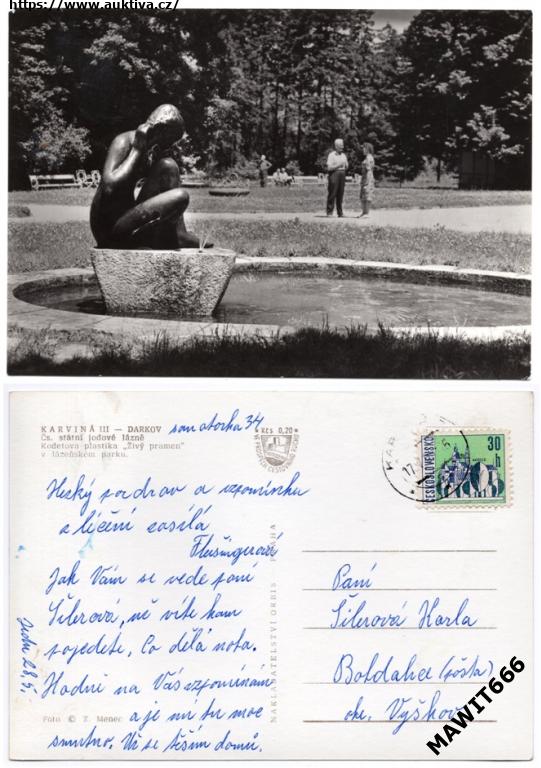 https://www.auktiva.cz/
KARVINÁ III — DARKOV
Čs. státní jodové lázně
Kodetova plastika „Živý pramen"
v lázeňském parku.
sanatorka 34
Kčs 0,20
30
h
ČESKOSLOVENSKO
Hezký pozdrav a vzpomínku
z léčení zasílá
Flešingerová
Jak Vám se vede paní
Šilerová, už víte kam
pojedete, Co dělá nota.
Hodně na Vás vzpomínám
a je mi tu moc
smutno. Už se těším domů.
NAKLADATELSTVÍ ORBIS PRAHA
Foto © Z. Menec
Paní
Šilerová Karla
Bohdalice (pošta)
okr. Vyškov
MAWIT666